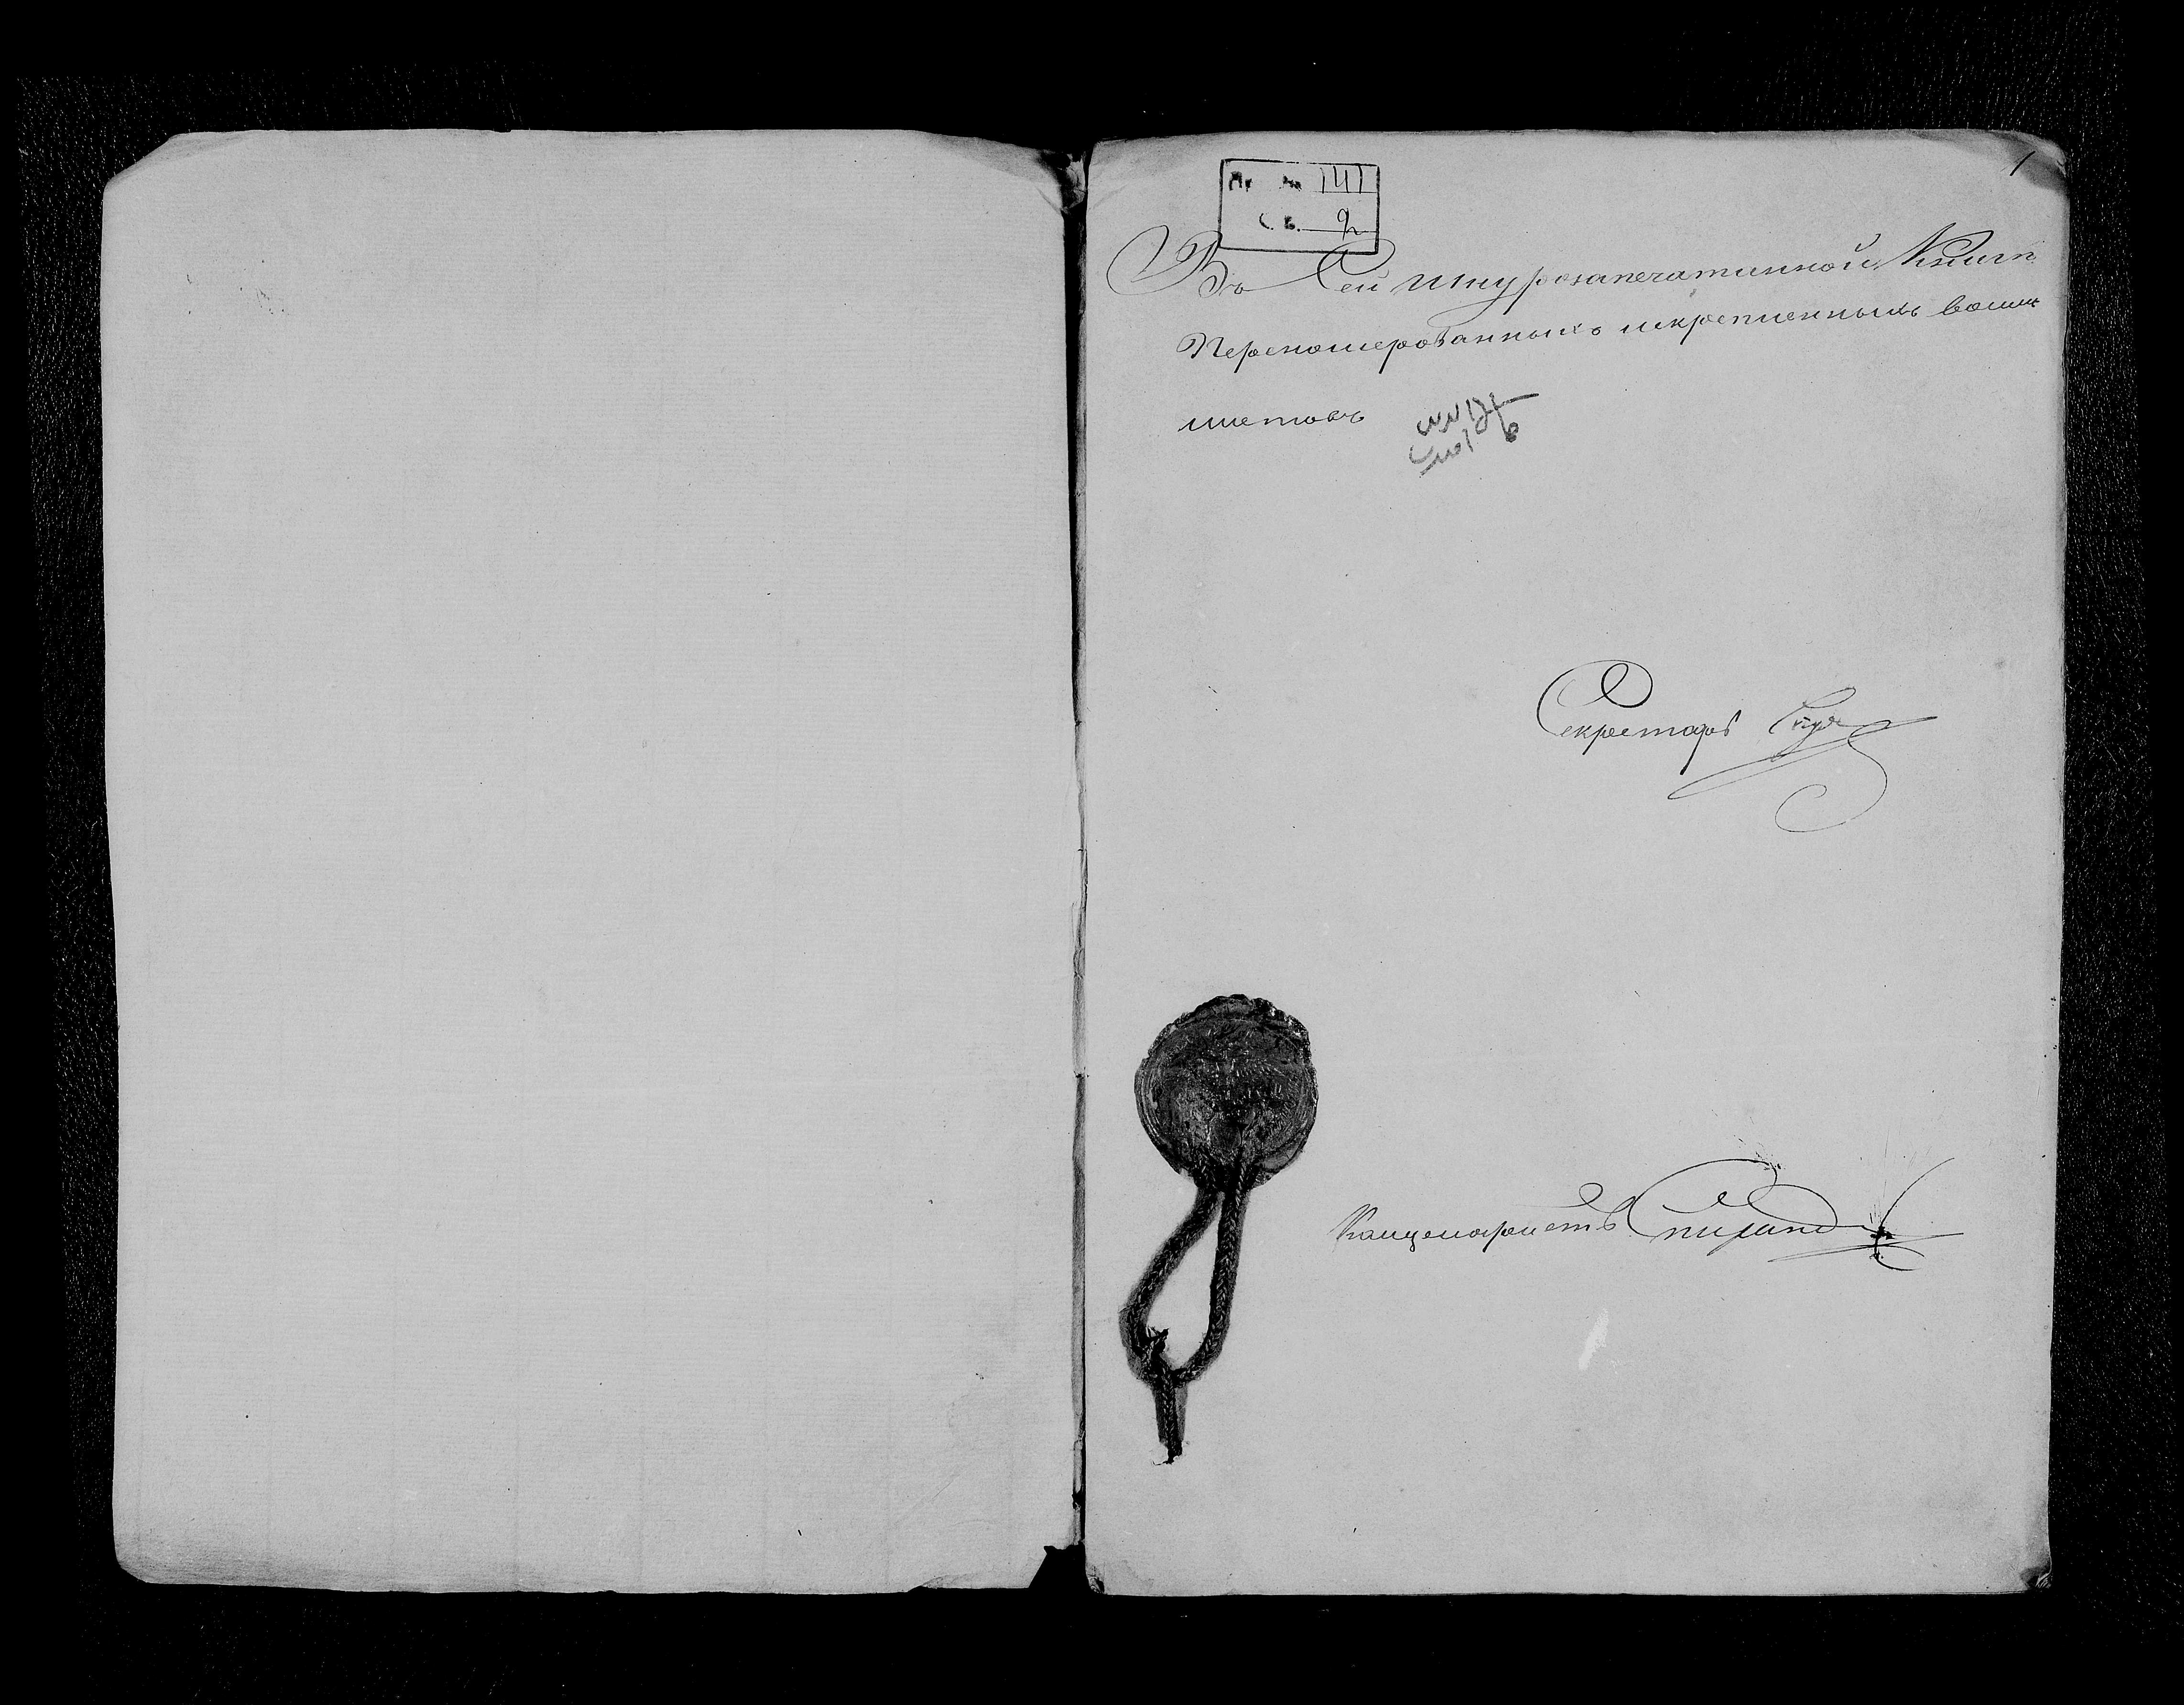 1
141
Св. 2
Въ Сей шнурозапечатанной Книг
Переномерованныхъ искрепленныхъ восим
листовъ
Секретарь
Канцеляристъ